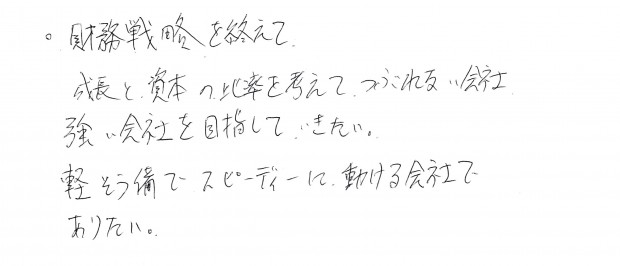 。財務戦略を終えて
成長と資本の比率を考えて、つぶれない会社
強い会社を目指していきたい。
軽そう備でスピーディーに動ける会社で
ありたい。